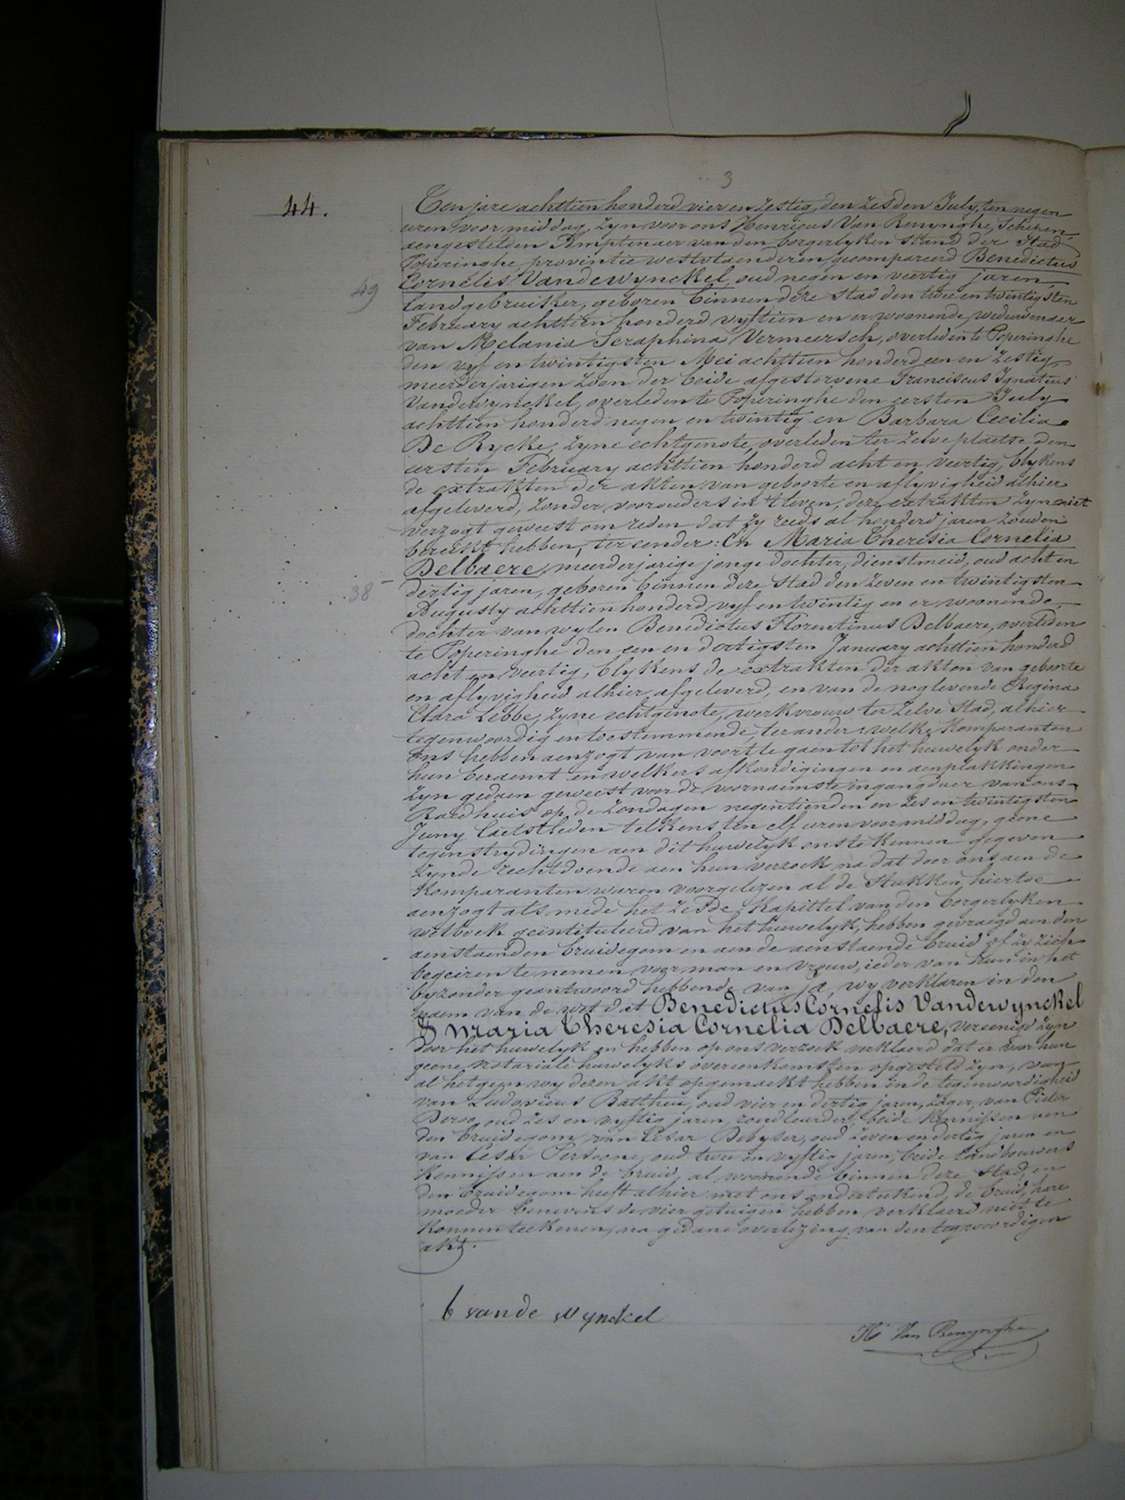 3
44.
Ten jare achttien honderd vier en zestig, den zesden July, ten negen
uren voor middag, zyn voor ons Henricus Van Renynghe, Schepen
aengestelden Amptenaer van den borgerlyken stand der Stad
Poperinghe provintie westvlaenderen gecompareerd Benedictus
Cornelis Vandewynckel, oud negen en veertig jaren,
49
landgebruiker, geboren binnen deze stad den twee en twintigsten
February achttien honderd vyftien en er woonende, weduwenaer
van Melania Seraphina Vermeersch, overleden te Poperinghe
den vyf en twintigsten Mei achttien honderd een en zestig,
meerderjarigen zoon der beide afgestorvene Franciscus Ignatius
Vandewynckel, overleden te Poperinghe den eersten July
achttien honderd negen en twintig en Barbara Cecilia
De Rycke, zyne echtgenote, overleden ter zelve plaetse den
eersten February achttien honderd acht en veertig, blykens
de extrakten der akten van geboorte en aflyvigheid alhier
afgeleverd, zonder voorouders in 't leven, deze extrakten zyn niet
verzogt geweest om reden dat zy reeds al honderd jaren zouden
bereikt hebben, ter eender: En Maria Theresia Cornelia
Delbaere, meerderjarige jonge dochter, dienstmeid, oud acht en
38
dertig jaren, geboren binnen deze stad den zeven en twintigsten
Augusty achttien honderd vyf en twintig en er woonende,
dochter van wylen Benedictus Florentinus Delbaere, overleden
te Poperinghe den een en dertigsten January achttien honderd
acht en veertig, blykens de extrakten der akten van geboorte
en aflyvigheid alhier afgeleverd, en van de nog levende Regina
Clara Lebbe, zyne echtgenote, werkvrouw ter zelve stad, alhier
tegenwoordig en toestemmende, ter ander: welke Komparanten
ons hebben aenzogt van voort te gaen tot het huwelyk onder
hun beraemt en welkers afkondigingen en aenplakkingen
zyn gedaen geweest voor de voornaemste ingangdeur van ons
Raedhuis op de zondagen negentienden en zes en twintigsten
Juny laetstleden telkens ten elf uren voor middag, geene
tegenstrydingen aen dit huwelyk ons te kennen gegeven
zynde recht doende aen hun verzoek na dat door ons aen de
Komparanten waren voorgelezen al de Stukken hiertoe
aenzogt als mede het zesde Kapittel van den borgerlyken
wetboek geintituleerd van het huwelyk, hebben gevraegd aen den
aenstaenden bruidegom en aen de aenstaende bruid of zy zich
begeiren te nemen voor man en vrouw, ieder van hun in het
byzonder geantwoord hebbende van ja, wy verklaren in den
naem van de wet dat Benedictus Cornelis Vandewynckel
& Maria Theresia Cornelia Delbaere, vereenigd zyn
door het huwelyk en hebben op ons verzoek verklaerd dat er voor hun
geene notariale huwelyks overeenkomsten opgesteld zyn, van
al hetgeen wy dezen akt opgemaekt hebben in de tegenwoordigheid
van Ludovicus Battheu, oud vier en dertig jaren, zager, van Pieter
Deroo, oud zes en vyftig jaren, beide kennissen aen
den bruidegom, van Cesar Debyser, oud zeven en dertig jaren en
van Cesar Persoone, oud twee en vyftig jaren, beide landbouwers
kennissen aen de bruid, al woonende binnen deze stad, en
den bruidegom heeft alhier met ons onderteekend, de bruid, hare
moeder benevens de vier getuigen hebben verklaerd niet te
konnen teekenen, na gedane overlezing van den tegenwoordigen
akt.
b vande Wynckel
Hs Van Renynghe